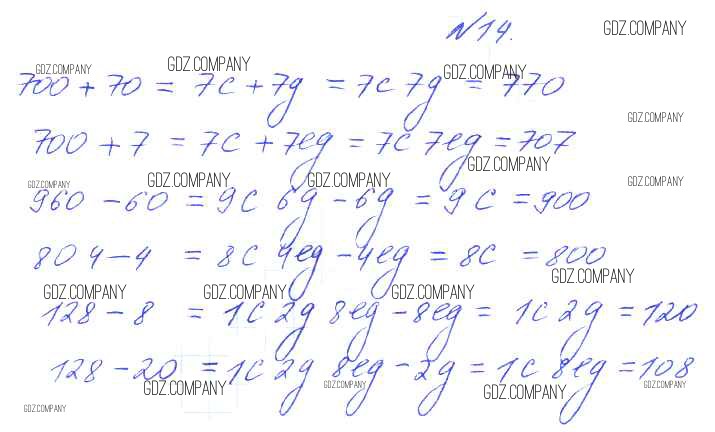 №14. GDZ.COMPANY
GDZ.COMPANY GDZ.COMPANY GDZ.COMPANY
700 + 70 = 7с + 7д = 7с 7д = 770
GDZ.COMPANY
700 + 7 = 7с + 7ед = 7с 7ед = 707
GDZ.COMPANY
GDZ.COMPANY GDZ.COMPANY GDZ.COMPANY GDZ.COMPANY
960 - 60 = 9с 6д - 6д = 9с = 900
804 - 4 = 8с 4ед - 4ед = 8с = 800
GDZ.COMPANY
GDZ.COMPANY GDZ.COMPANY GDZ.COMPANY
128 - 8 = 1с 2д 8ед - 8ед = 1с 2д = 120
128 - 20 = 1с 2д 8ед - 2д = 1с 8ед = 108
GDZ.COMPANY GDZ.COMPANY GDZ.COMPANY GDZ.COMPANY
GDZ.COMPANY